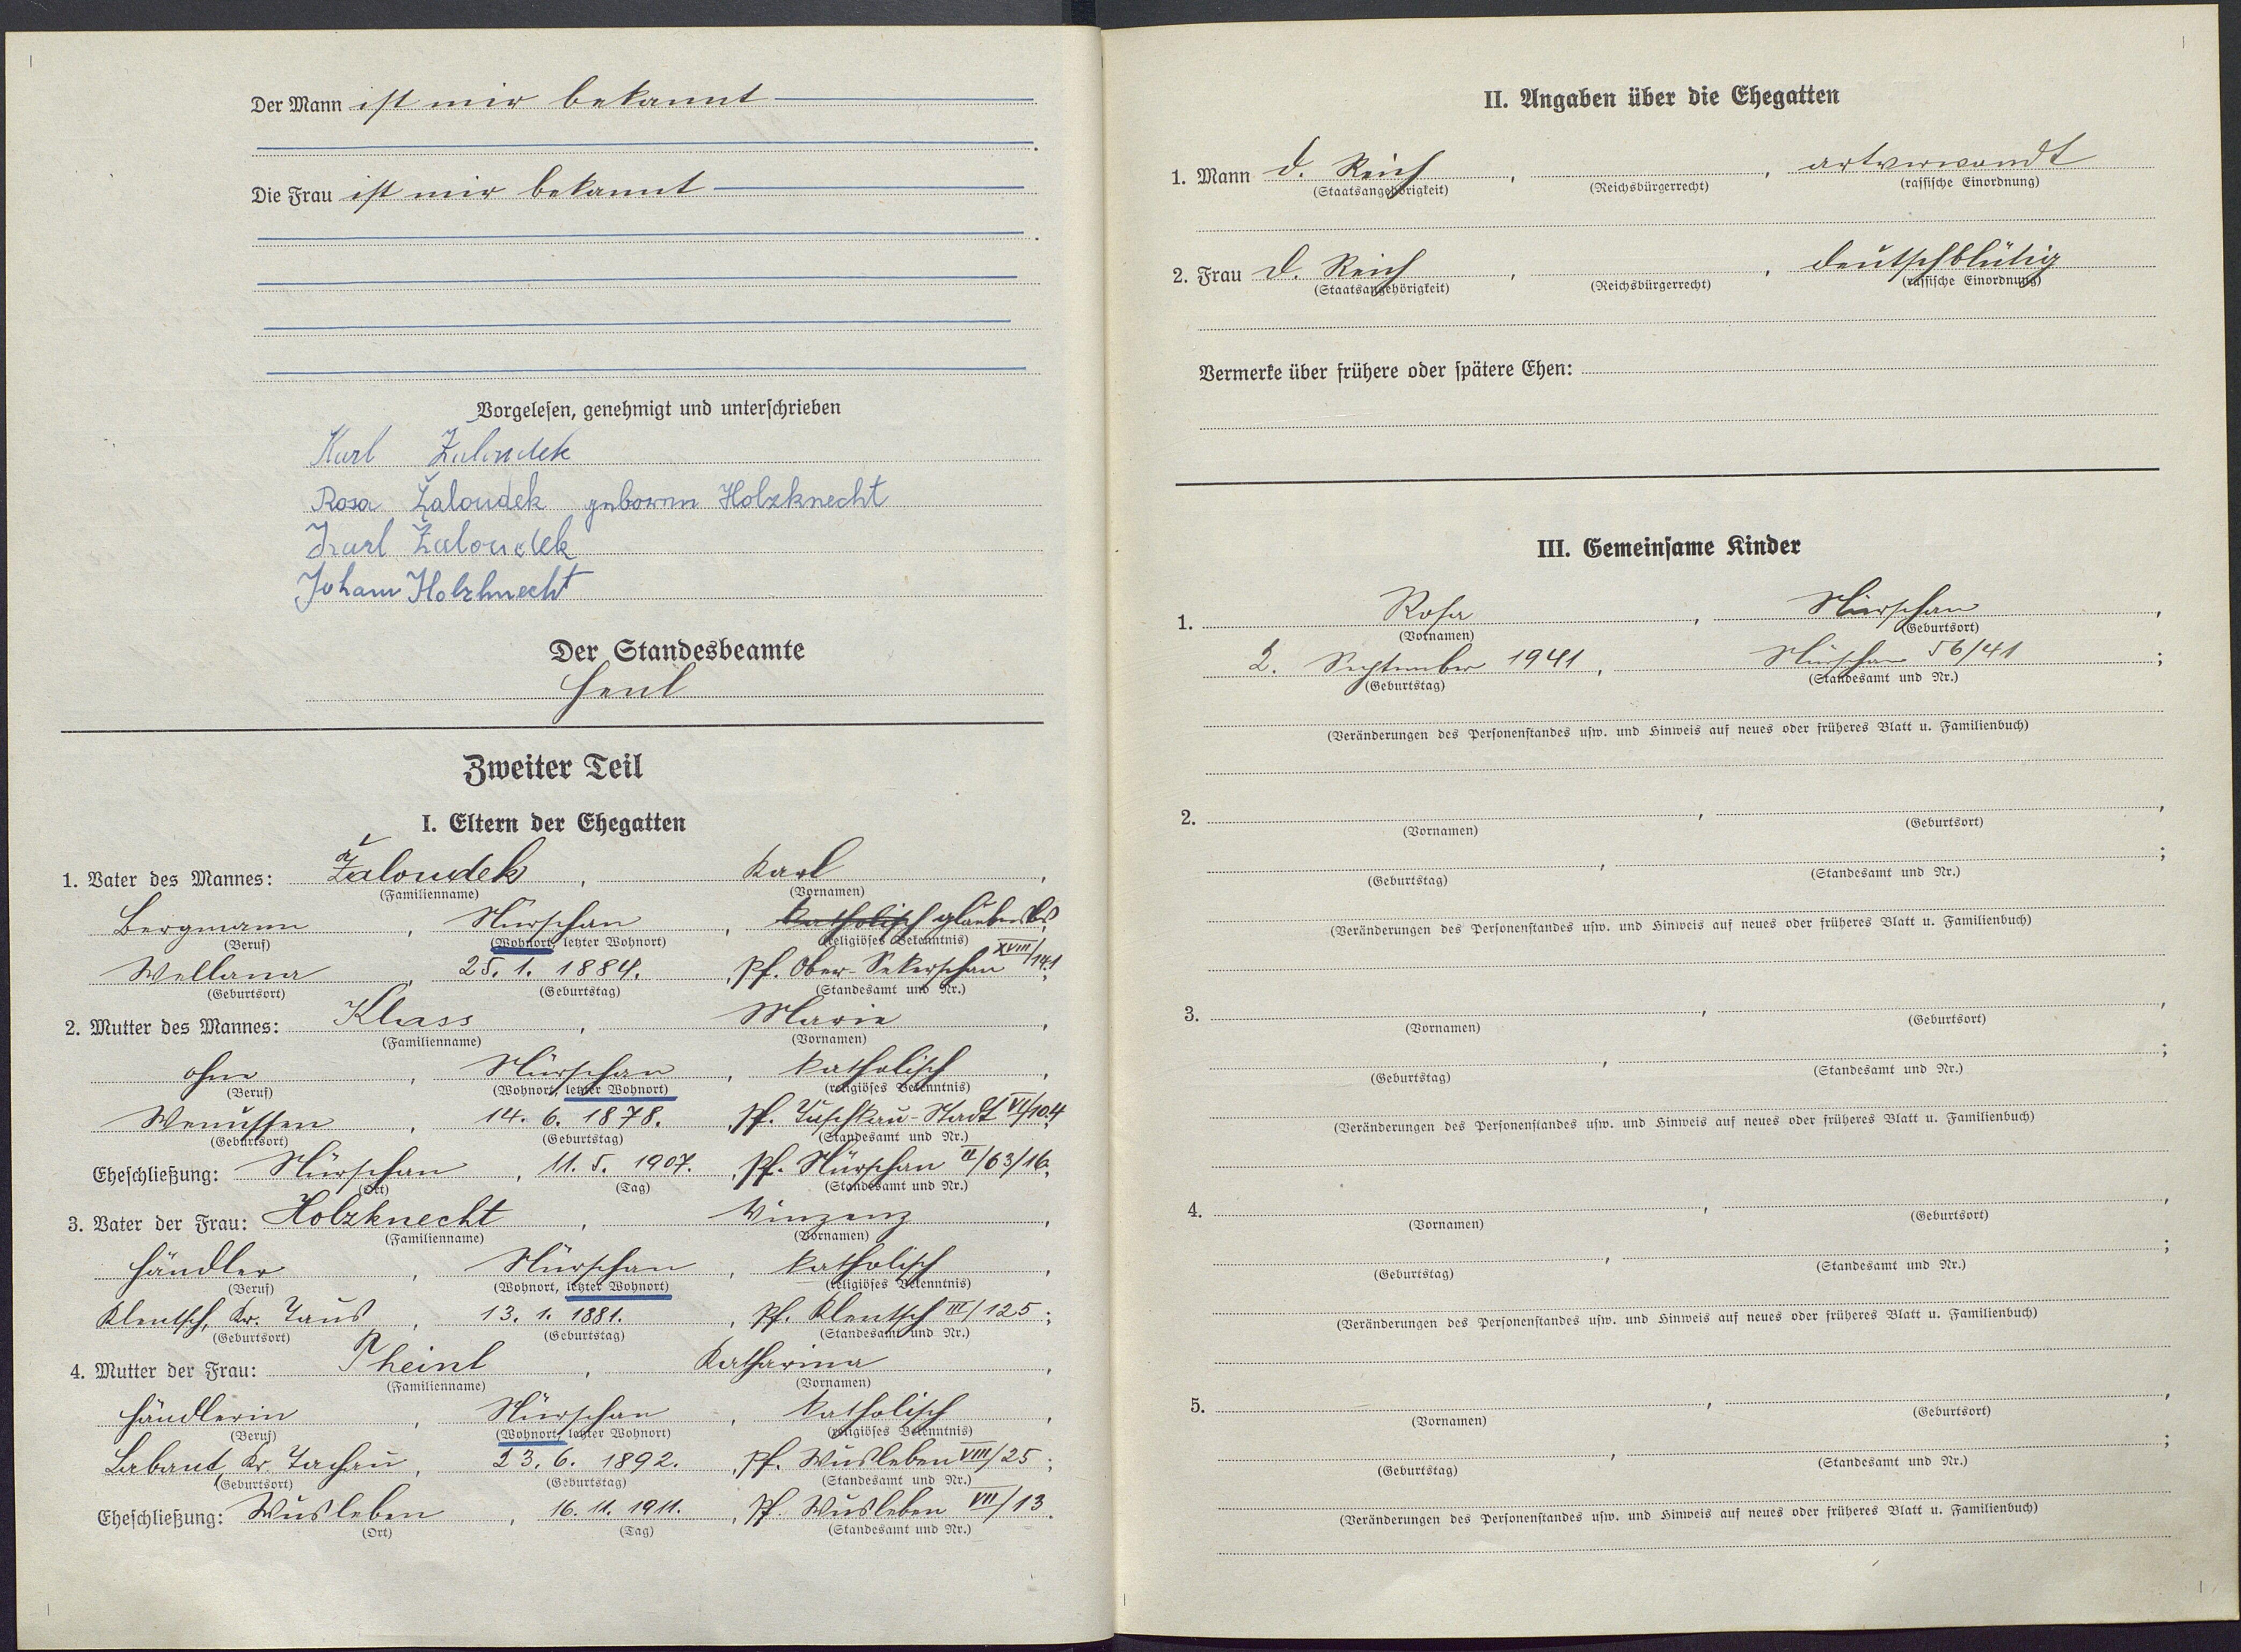 Der Mann ist mir bekannt
Die Frau ist mir bekannt
Vorgelesen, genehmigt und unterschrieben
Karl Žaloudek
Rosa Žaloudek geborene Holzknecht
Karl Žaloudek
Johann Holzknecht
Der Standesbeamte
Henl
Zweiter Teil
I. Eltern der Ehegatten
1. Vater des Mannes: Žaloudek, Karl,
(Familienname) (Vornamen)
Bergmann, Nürschan, katholisch glaubenslos,
(Beruf) (Wohnort, letzter Wohnort) (religiöses Bekenntnis)
Wellana, 25. 1. 1884., Pf. Ober-Sekerschan XVIII/141;
(Geburtsort) (Geburtstag) (Standesamt und Nr.)
2. Mutter des Mannes: Klass, Marie,
(Familienname) (Vornamen)
ohne, Nürschan, katholisch,
(Beruf) (Wohnort, letzter Wohnort) (religiöses Bekenntnis)
Wenussen, 14. 6. 1878., Pf. Tuschkau-Stadt VI/104
(Geburtsort) (Geburtstag) (Standesamt und Nr.)
Eheschließung: Nürschan, 11. 5. 1907., Pf. Nürschan II/63/16.
(Ort) (Tag) (Standesamt und Nr.)
3. Vater der Frau: Holzknecht, Vinzenz,
(Familienname) (Vornamen)
Händler, Nürschan, katholisch,
(Beruf) (Wohnort, letzter Wohnort) (religiöses Bekenntnis)
Klentsch, Kr. Taus, 13. 1. 1881., Pf. Klentsch III/125;
(Geburtsort) (Geburtstag) (Standesamt und Nr.)
4. Mutter der Frau: Theinl, Katharina,
(Familienname) (Vornamen)
Händlerin, Nürschan, katholisch,
(Beruf) (Wohnort, letzter Wohnort) (religiöses Bekenntnis)
Labant, Kr. Tachau, 23. 6. 1892., Pf. Wusleben VIII/25;
(Geburtsort) (Geburtstag) (Standesamt und Nr.)
Eheschließung: Wusleben, 16. 11. 1911., Pf. Wusleben VII/13.
(Ort) (Tag) (Standesamt und Nr.)
II. Angaben über die Ehegatten
1. Mann d. Reich, , artverwandt
(Staatsangehörigkeit) (Reichsbürgerrecht) (rassische Einordnung)
2. Frau d. Reich, , deutschblütig
(Staatsangehörigkeit) (Reichsbürgerrecht) (rassische Einordnung)
Vermerke über frühere oder spätere Ehen:
III. Gemeinsame Kinder
1. Rosa, Nürschan,
(Vornamen) (Geburtsort)
2. September 1941, Nürschan 56/41;
(Geburtstag) (Standesamt und Nr.)
(Veränderungen des Personenstandes usw. und Hinweis auf neues oder früheres Blatt u. Familienbuch)
2. , ,
(Vornamen) (Geburtsort)
, ;
(Geburtstag) (Standesamt und Nr.)
(Veränderungen des Personenstandes usw. und Hinweis auf neues oder früheres Blatt u. Familienbuch)
3. , ,
(Vornamen) (Geburtsort)
, ;
(Geburtstag) (Standesamt und Nr.)
(Veränderungen des Personenstandes usw. und Hinweis auf neues oder früheres Blatt u. Familienbuch)
4. , ,
(Vornamen) (Geburtsort)
, ;
(Geburtstag) (Standesamt und Nr.)
(Veränderungen des Personenstandes usw. und Hinweis auf neues oder früheres Blatt u. Familienbuch)
5. , ,
(Vornamen) (Geburtsort)
, ;
(Geburtstag) (Standesamt und Nr.)
(Veränderungen des Personenstandes usw. und Hinweis auf neues oder früheres Blatt u. Familienbuch)